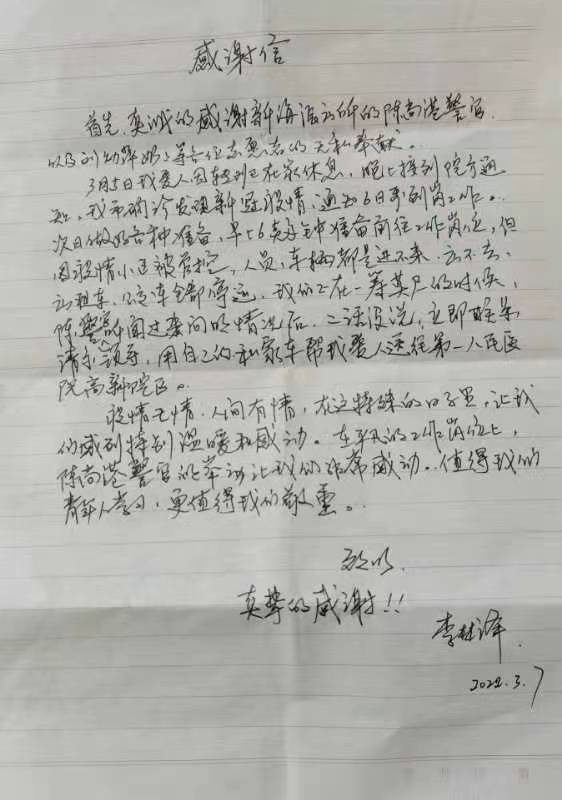 感谢信
首先，真诚的感谢新海派出所的陈尚港警官，
以及刘幼萍奶奶等各位志愿者的无私奉献。
3月5日我爱人因轮到已在家休息，晚上接到院方通
知，我市确诊发现新冠疫情，通知6日早到岗工作。
次日做好各种准备，早上6点多钟准备前往工作岗位，但
因疫情小区被管控，人员，车辆都是进不来，出不去，
出租车，公交车全部停运，我们正在一筹莫展的时候，
陈警官闻过来问明情况后，二话没说，立即
请示领导，用自己的私家车帮我爱人送往第一人民医
院高新院区。
疫情无情，人间有情，在这特殊的日子里，让我
们感到特别温暖和感动。在平凡的工作岗位上，
陈尚港警官的举动让我们非常感动。值得我们
青年人学习，更值得我们敬重。
致以
真挚的感谢!!
李
2022.3.7